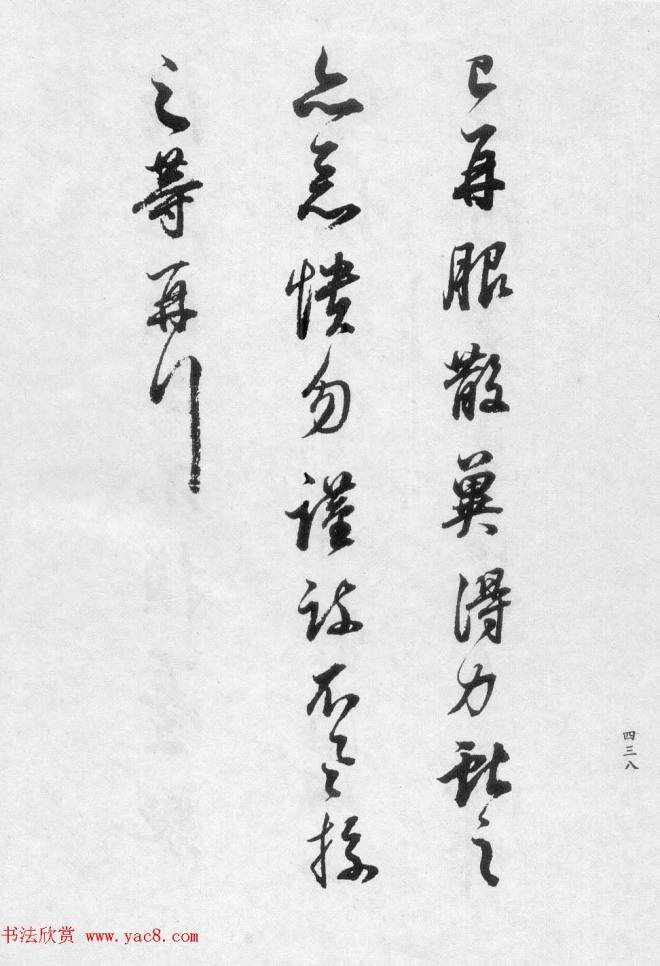 已再服散冀得力献之
亦恶愦勿謹疏不具操
之等再行
四三八
书法欣赏 www.yac8.com